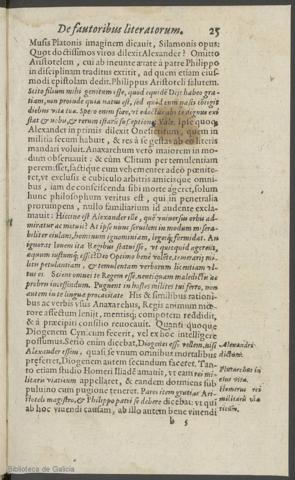 De fautoribus literatorum. 25
Musis Platonis imaginem dicauit, Silamonis opus.
Quot doctissimos viros dilexit Alexander? Omitto
Aristotelem, cui ab ineunte ætate à patre Philippo
in disciplinam traditus extitit, ad quem etiam eius-
modi epistolam dedit. Philippus Aristoteli salutem.
Scito filium mihi genitum esse, quod equidē Dijs habeo gra-
tiam, non proinde quia natus est, sed quòd eum nasci cōtigit
diebus vitæ tuæ. Spero enim fore, vt eductus abs te dignus exi
stat & nobis, & rerum istarū susceptione. Vale. Ipse quoq;
Alexander in primis dilexit Onesicritum, quem in
militia secum habuit, & res à se gestas
mandari voluit. Anaxarchum verò maiorem in mo-
dum obseruauit: & cùm Clitum per temulentiam
peremisset, factiq; eum vehementer adeò pœnite-
ret, vt exclusis è cubiculo arbitris amicisque omni-
bus, iam de consciscenda sibi morte ageret, solum
hunc philosophum veritus est, qui in penetralia
prorumpens, nullo familiarium id audente excla-
mauit: Hiccine est Alexander ille, quē vniuersus orbis ad-
miratur ac metuit? At ipse nunc seruulem in modum misera-
biliter eiulans, hominum ignominiam, legesq; formidat. An
ignoras Iouem ita Regibus statuisse, vt quicquid agerent,
petulantiam, & temulentam verborum licentiam vl-
tus es.
His & similibus rationi-
bus ac verbis vsus Anaxarchus, Regis animum mœ-
rore affectum leniit, mentisq; compotem reddidit,
& à præcipiti consilio reuocauit. Quanti quoque
Diogenem Cynicum fecerit, vel ex hoc intelligere
possumus. Seriò enim dicebat, Diogenes esse vellem, nisi
Alexander essem, quasi se vnum omnibus mortalibus
præferret, Diogenem autem secundum faceret. Tan-
to etiam studio Homeri Iliadē amauit, vt eam rei mi-
litaris viaticum appellaret, & eandem dormiens sub
puluino cum pugione teneret. Pares item gratias Ari-
stoteli magistro, & Philippo patri se debere dicebat: vt qui
ab hoc viuendi causam, ab illo autem bene viuendi
b 5
Alexandri
dictum.
Plutarchus in
eius vita.
Homerus rei
militaris via
ticum.
Biblioteca de Galicia